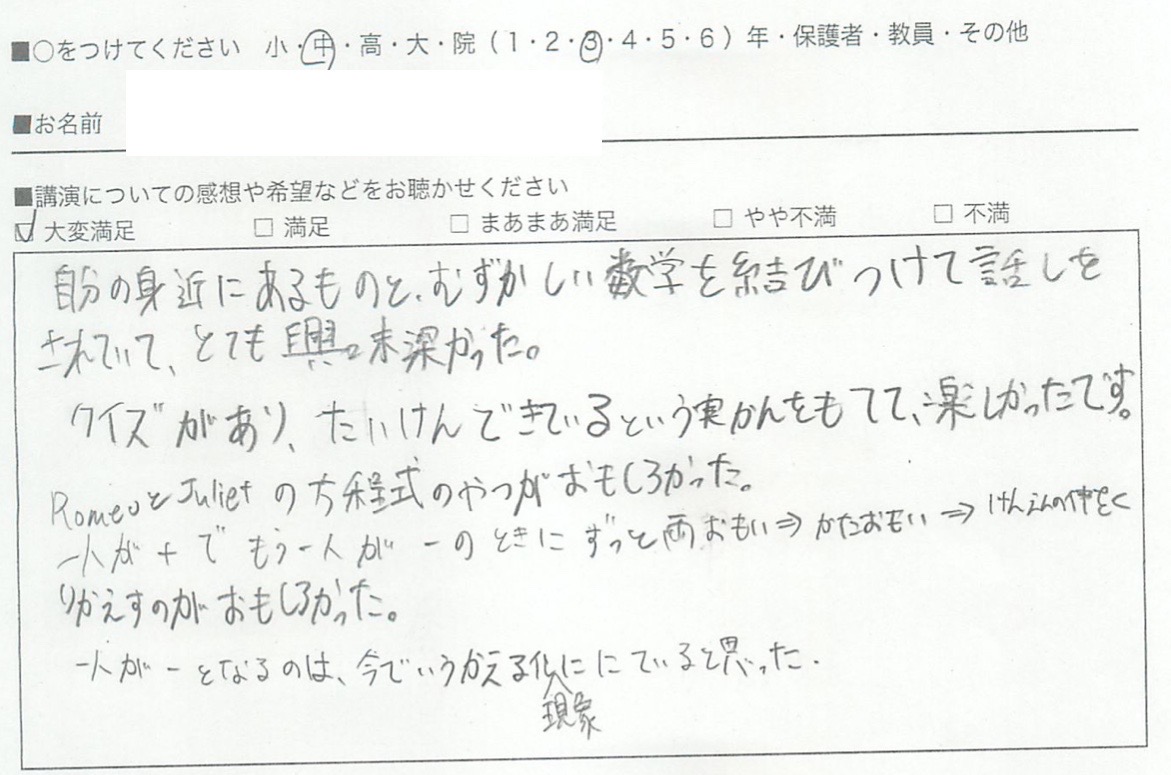 ■○をつけてください 小・中・高・大・院（1・2・3・4・5・6）年・保護者・教員・その他
■お名前
■講演についての感想や希望などをお聴かせください
☑ 大変満足 □ 満足 □ まあまあ満足 □ やや不満 □ 不満
自分の身近にあるものと、むずかしい数学を結びつけて話しを
されていて、とても興味深かった。
クイズがあり、たいけんできているという実かんをもてて、楽しかったです。
RomeoとJulietの方程式のやつがおもしろかった。
一人が＋でもう一人が－のときにずっと両おもい⇒かたおもい⇒けんえんの仲をく
りかえすのがおもしろかった。
一人が－となるのは、今でいうかえる化現象ににていると思った.